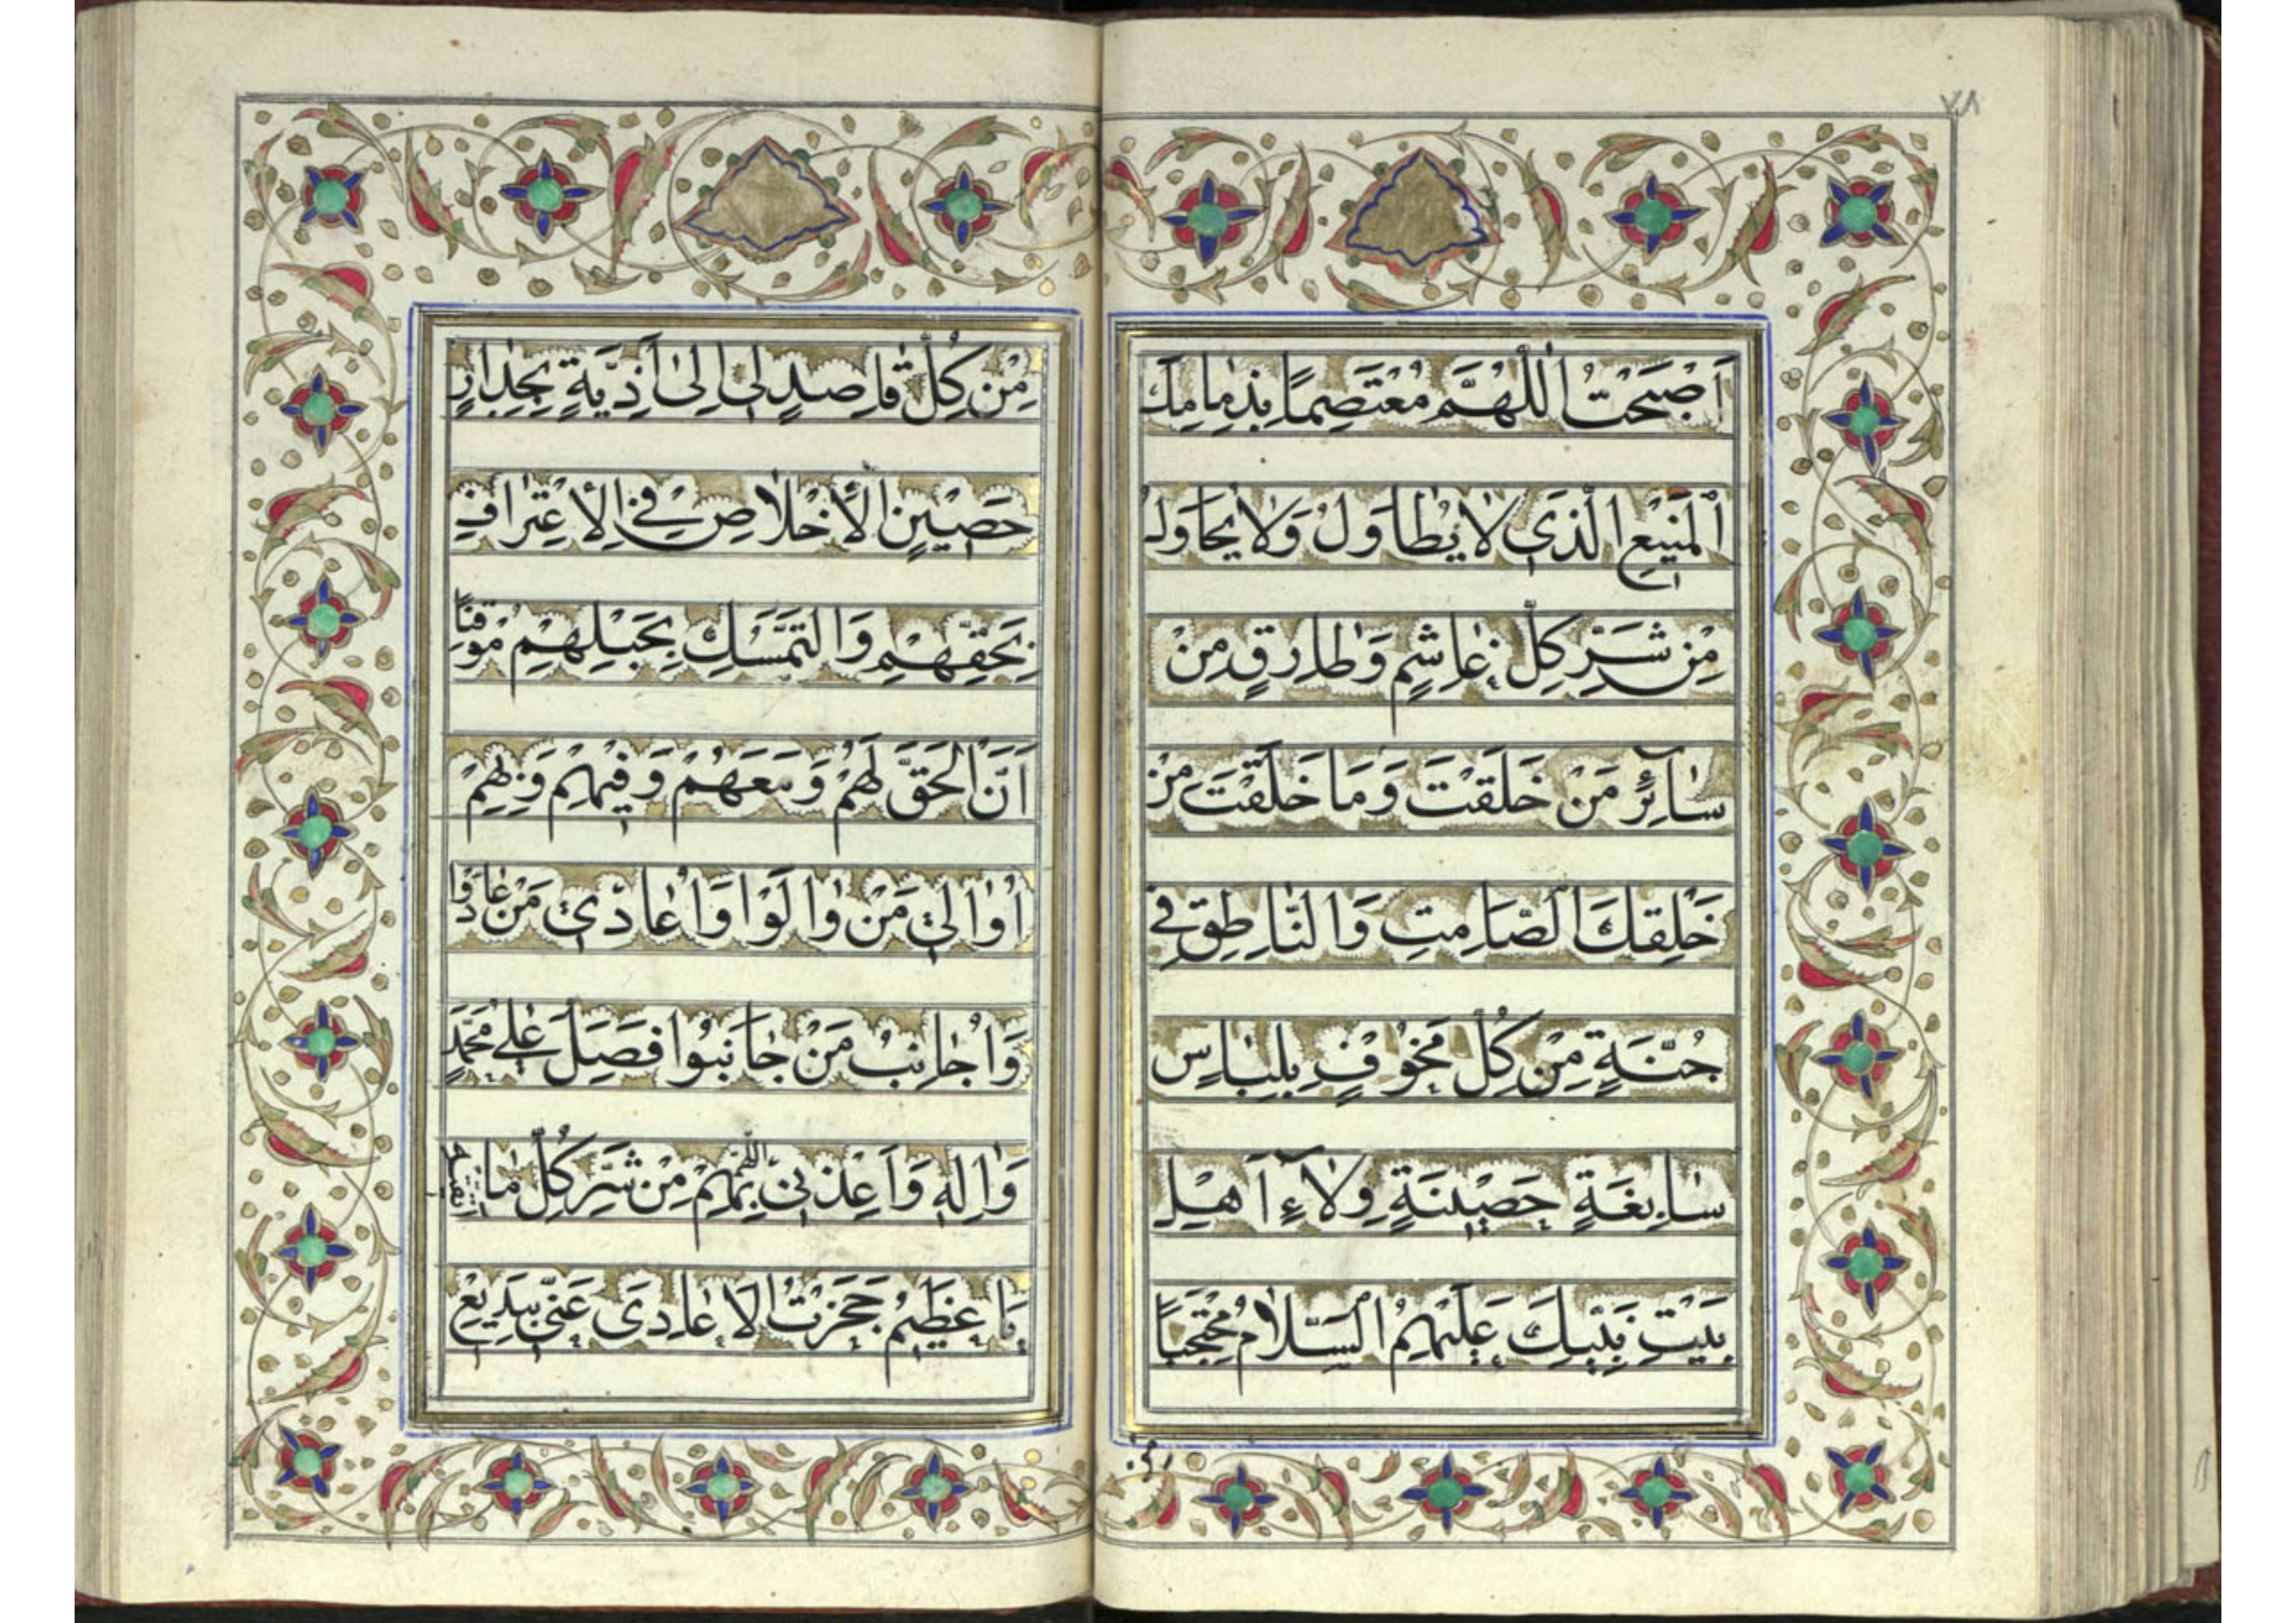 ٧٨
اَصْبَحْتُ اَللّٰهُمَّ مُعْتَصِمًا بِذِمٰامِكَ
اَلْمَنيْعِ الَّذى لٰا يُطٰاوَلُ وَلٰا يُحٰاوَلُ
مِنْ شَرِّ كُلِّ غٰاشِمٍ وَطٰارِقٍ مِنْ
سٰآئِرِ مَنْ خَلَقْتَ وَمَا خَلَقْتَ مِنْ
خَلْقِكَ الصّٰامِتِ وَالنّٰاطِقِ فى
جُنَّةٍ مِنْ كُلِّ مَخُوْفٍ بِلِبٰاسٍ
سٰابِغَةٍ حَصيْنَةٍ وِلٰآءِ اَهْلِ
بَيْتِ نَبِيِّكَ عَلَيْهِمُ السَّلٰامُ مُحْتَجِبًا
مِنْ كُلِّ قٰاصِدٍ لى اِلىٰ اَذِيَّةٍ بِجِدٰارٍ
حَصيْنٍ الْاِخْلٰاصِ فِى الْاِعْتِرٰافِ
بِحَقِّهِمْ وَالتَّمَسُّكِ بِحَبْلِهِمْ مُوْقِنًا
اَنَّ الْحَقَّ لَهُمْ وَمَعَهُمْ وَفيْهِمْ وَبِهِمْ
اُوٰالى مَنْ وٰالَوْا وَاُعٰادى مَنْ عٰادَوْا
وَاُجٰانِبُ مَنْ جٰانَبُوا فَصَلِّ عَلىٰ مُحَمَّدٍ
وَاٰلِهِ وَاَعِذْنى اللّٰهُمَّ بِهِمْ مِنْ شَرِّ كُلِّ مٰا اَتَّقيهِ
يٰا عَظيْمُ حَجَزْتُ الْاَعٰادِىَ عَنّى بِبَديْعِ